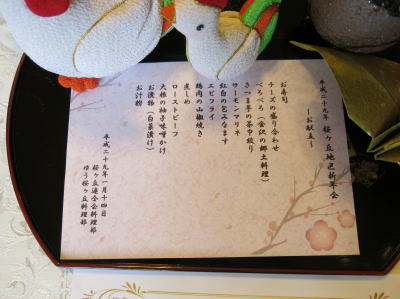 平成二十九年 桜ヶ丘地区新年会
～お献立～
お寿司
チーズの盛り合わせ
べろべろ(金沢の郷土料理)
さつま芋の茶巾絞り
サーモンマリネ
紅白の包みなます
エビフライ
鶏肉の山椒焼き
煮しめ
ローストビーフ
大根の柚子味噌かけ
お漬物(白菜漬け)
お汁粉
平成二十九年一月十四日
桜ヶ丘連合会料理部
ゆう桜ヶ丘料理部